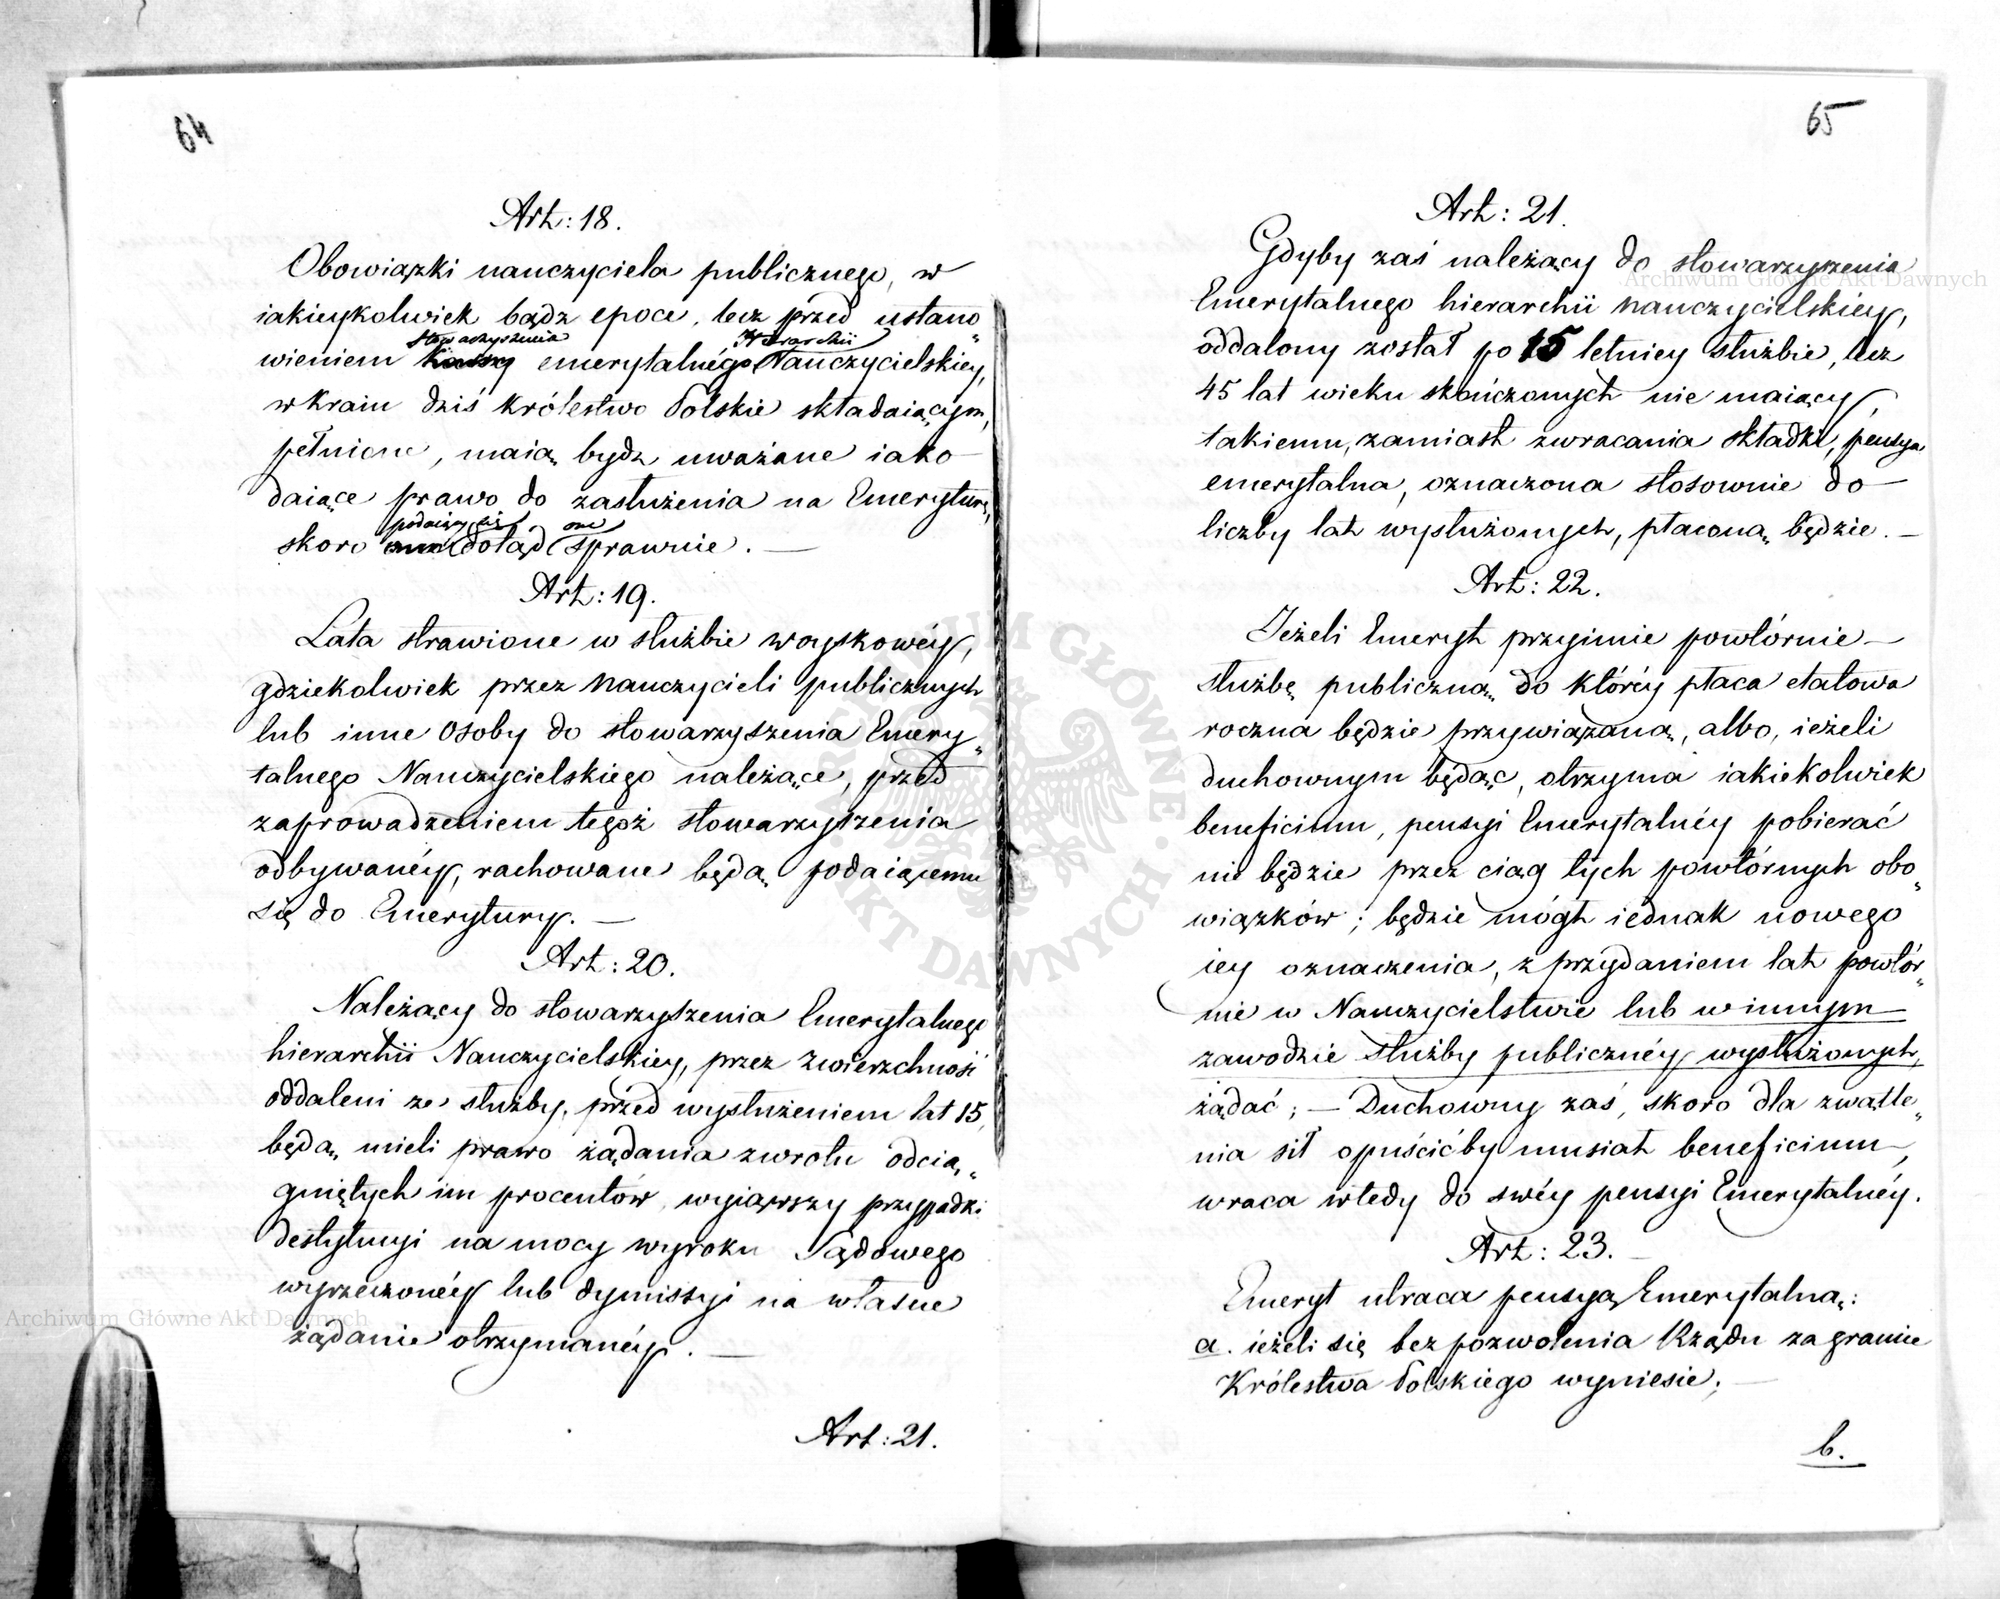 64
Art: 18.
Obowiązki nauczyciela publicznego, w
iakieykolwiek bądz epoce, lecz przed ustano„
stowarzyszenia Hierarchii
wieniem Kassy emerytalnégo Nauczycielskiey,
w kraiu dziś królestwo Polskie składaiącym,
pełnione, maią bydz uważane iako
daiące prawo do zasłużenia na Emeryturę,
podaiący się one
skoro dotąd sprawnie. —
Art: 19.
Lata strawione w służbie woyskowéy,
gdziekolwiek przez Nauczycieli publicznych
lub inne Osoby do stowarzyszenia Emery„
talnego Nauczycielskiego należące, przed
zaprowadzeniem tegoż stowarzyszenia
odbywanéy, rachowane będą podaiącemu
się do Emerytury. —
Art: 20.
Należący do stowarzyszenia Emerytalnego
hierarchii Nauczycielskiey, przez Zwierzchność
oddaleni ze służby, przed wysłużeniem lat 15,
będą mieli prawo żądania zwrotu odcią„
gniętych im procentów, wyiąwszy przypadki
destytucyi na mocy wyroku Sądowego
wyrzeczonéy lub dymissyi na własne
żądanie otrzymanéy. —
Art: 21.
65
Art: 21.
Gdyby zaś należący do stowarzyszenia
Emerytalnego hierarchii Nauczycielskiéy,
oddalony został po 15 letniey służbie, lecz
45 lat wieku skończonych nie maiący,
takiemu, zamiast zwracania składki, pensya
emerytalna, oznaczona stosownie do
liczby lat wysłużonych, płaconą będzie. —
Art: 22.
Jeżeli Emeryt przyimie powtórnie —
służbę publiczną, do któréy płaca etatowa
roczna będzie przywiązaną, albo, ieżeli
duchownym będąc, otrzyma iakiekolwiek
beneficium, pensyi Emerytalnéy pobierać
nie będzie przez ciąg tych powtórnych obo„
wiązków; będzie mógł iednak nowego
iey oznaczenia, z przydaniem lat powtór„
nie w Nauczycielstwie lub w innym
zawodzie służby publicznéy wysłużonych,
żądać; — Duchowny zaś, skoro dla zwątle„
nia sił opuścićby musiał beneficium,
wraca wtedy do swéy pensyi Emerytalnéy.
Art: 23. —
Emeryt utraca pensyą Emerytalną:
a. ieżeli się bez pozwolenia Rządu za granice
Królestwa Polskiego wyniesie; —
b.
Archiwum Główne Akt Dawnych
Archiwum Główne Akt Dawnych
ARCHIWUM GŁÓWNE · AKT DAWNYCH ·